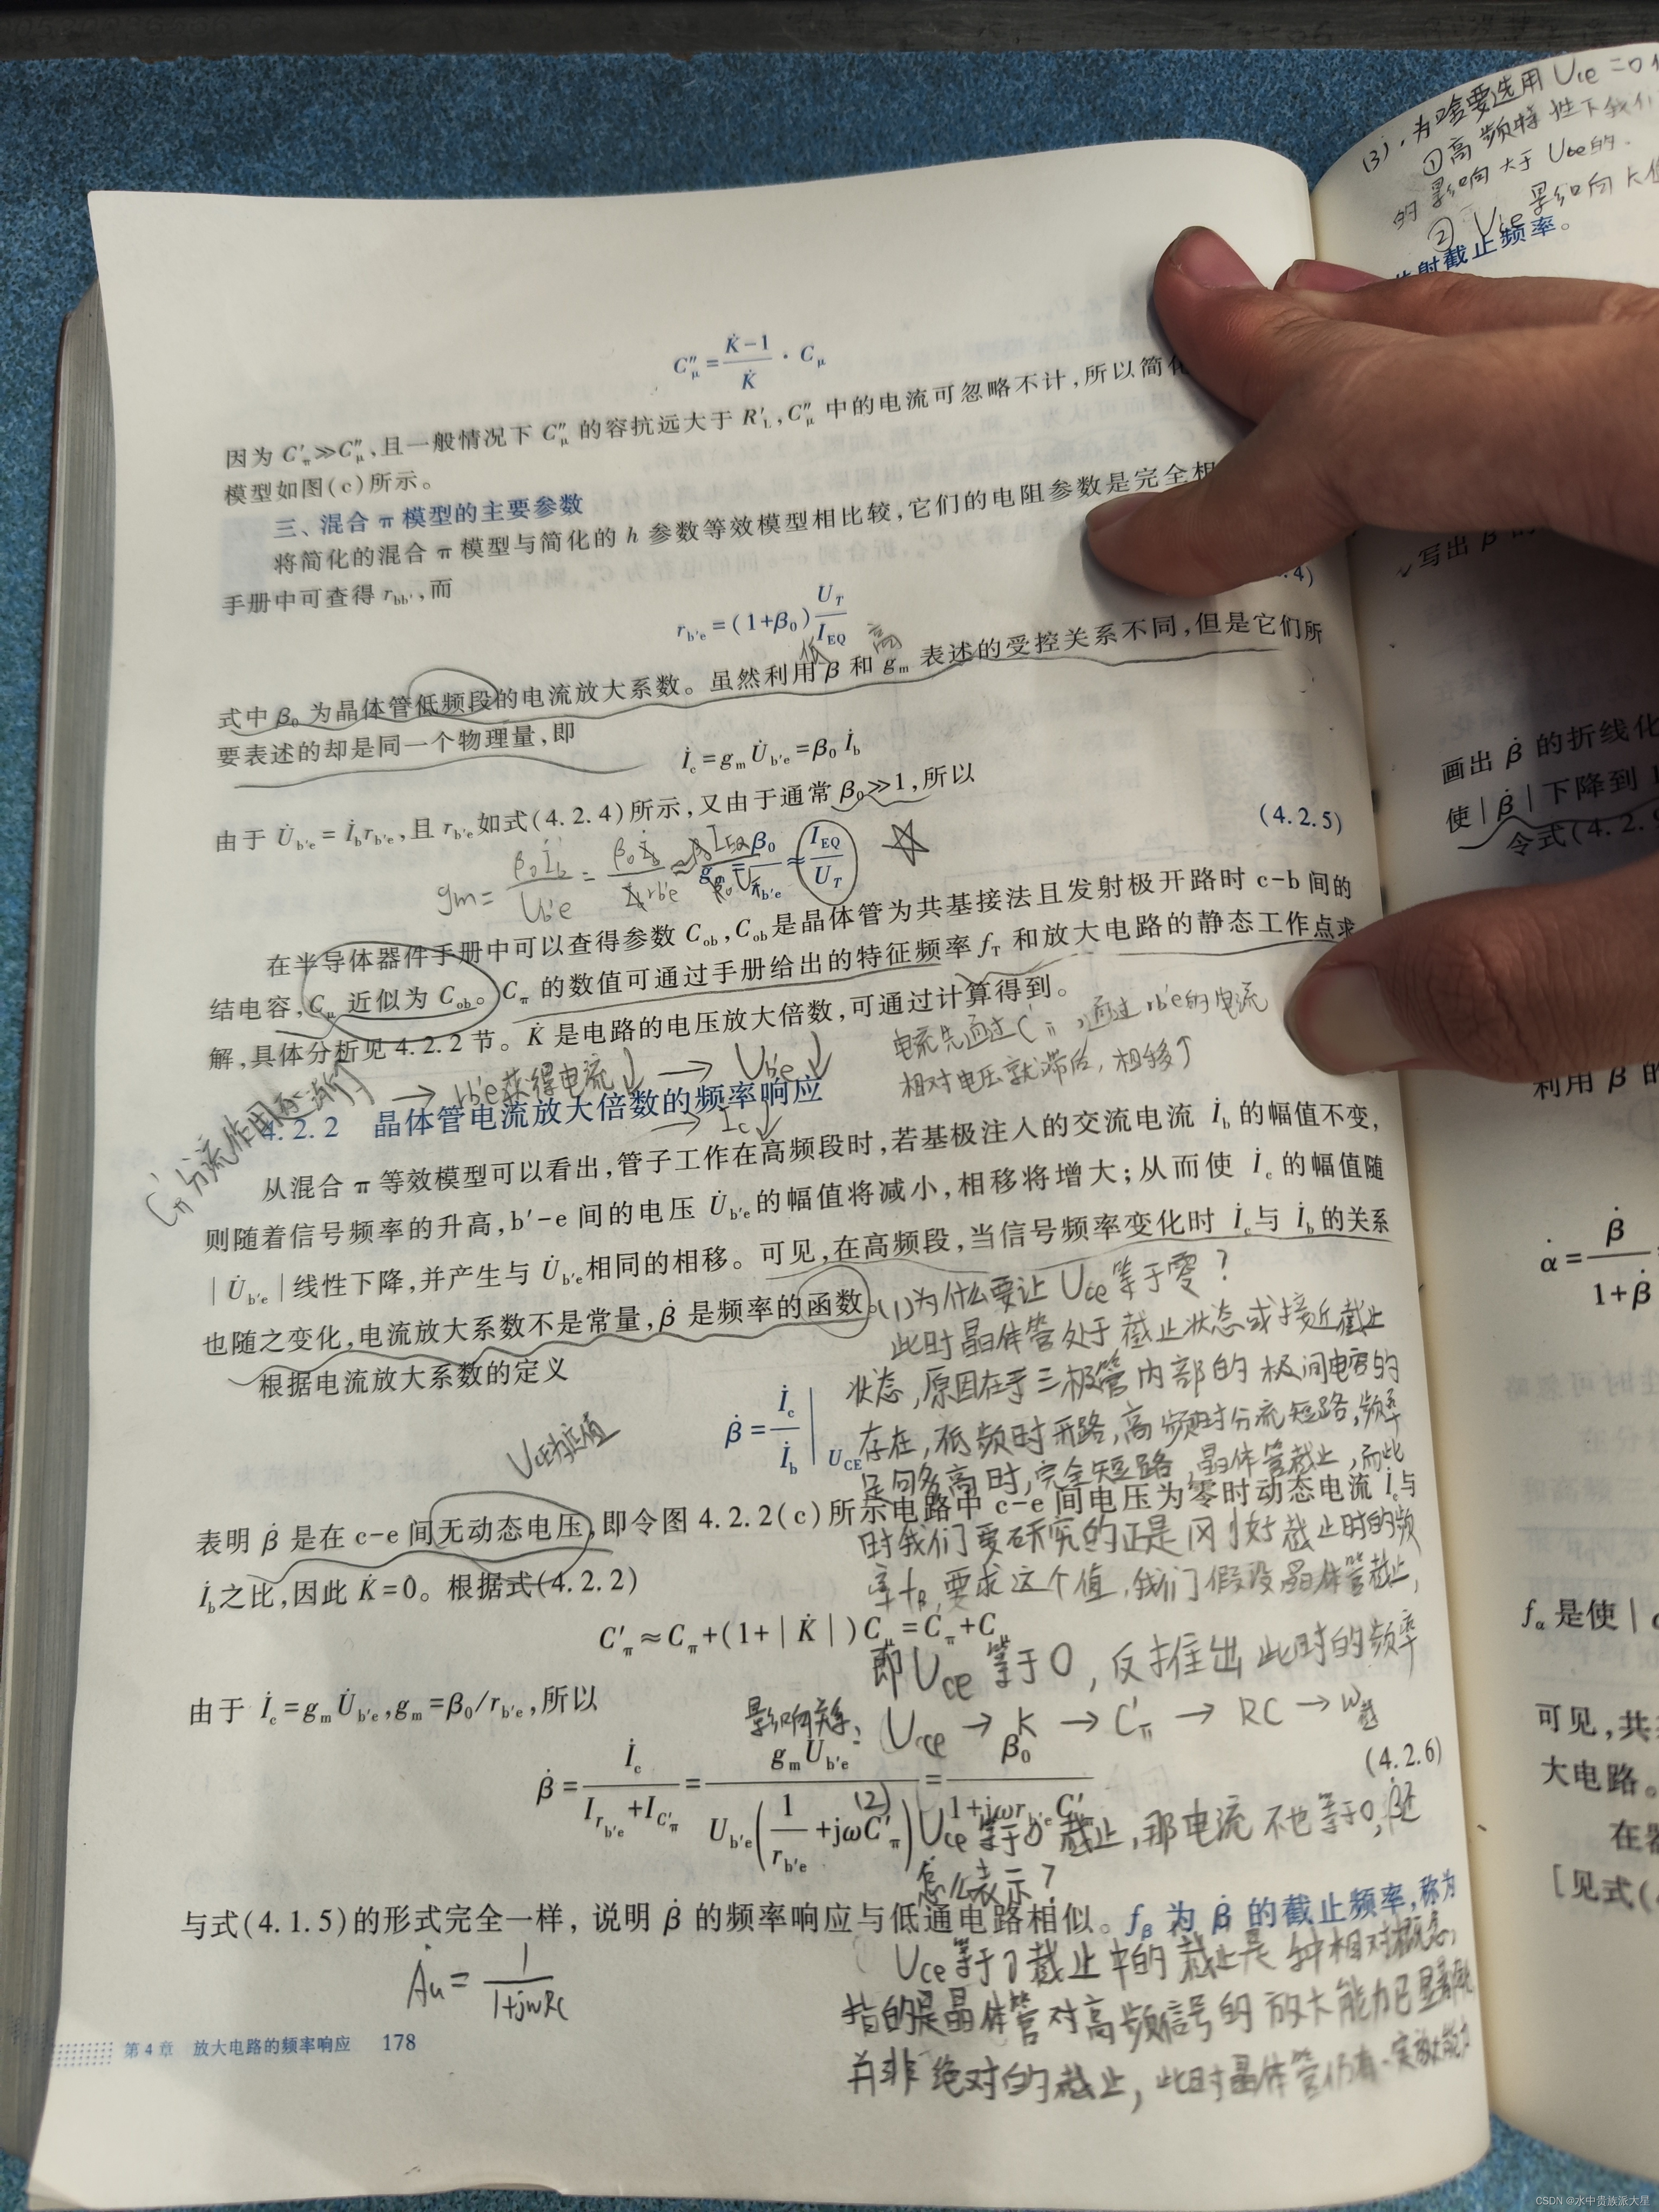 C″μ = (K̇−1)/K̇ · Cμ
因为 C′π≫C″μ,且一般情况下 C″μ 的容抗远大于 R′L,C″μ 中的电流可忽略不计,所以简化
模型如图(c)所示。
三、混合 π 模型的主要参数
将简化的混合 π 模型与简化的 h 参数等效模型相比较,它们的电阻参数是完全相
手册中可查得 rbb′,而
rb′e=(1+β0) UT/IEQ
4)
低 高
式中 β0 为晶体管低频段的电流放大系数。虽然利用 β 和 gm 表述的受控关系不同,但是它们所
要表述的却是同一个物理量,即
İc=gm U̇b′e=β0 İb
由于 U̇b′e = İb rb′e,且 rb′e如式(4.2.4)所示,又由于通常 β0≫1,所以
gm= ≈ IEQ/UT (4.2.5)
gm = β0İb/Ub′e = β0İb/İb rb′e ≈
在半导体器件手册中可以查得参数 Cob,Cob是晶体管为共基接法且发射极开路时 c-b 间的
结电容,Cμ 近似为 Cob。Cπ 的数值可通过手册给出的特征频率 fT 和放大电路的静态工作点求
解,具体分析见 4.2.2 节。K̇ 是电路的电压放大倍数,可通过计算得到。
电流先通过C′π,通过rb′e的电流
相对电压就滞后,相移↑
C′π分流作用逐渐↑ → rb′e获得电流↓ → Ub′e↓
→ Ic↓
4.2.2 晶体管电流放大倍数的频率响应
从混合 π 等效模型可以看出,管子工作在高频段时,若基极注入的交流电流 İb 的幅值不变,
则随着信号频率的升高,b′-e 间的电压 U̇b′e的幅值将减小,相移将增大;从而使 İc 的幅值随
|U̇b′e|线性下降,并产生与 U̇b′e相同的相移。可见,在高频段,当信号频率变化时 İc与 İb的关系
也随之变化,电流放大系数不是常量,β̇ 是频率的函数。
根据电流放大系数的定义
β̇ = İc/İb | UCE
UCE为定值
(1)为什么要让Uce等于零?
此时晶体管处于截止状态或接近截止
状态,原因在于三极管内部的极间电容的
存在,低频时开路,高频时分流短路,频率
足够高时,完全短路,晶体管截止,而此
时我们要研究的正是刚好截止时的频
率fβ,要求这个值,我们假设晶体管截止,
即Uce等于0,反推出此时的频率
表明 β̇ 是在 c-e 间无动态电压,即令图 4.2.2(c)所示电路中 c-e 间电压为零时动态电流 İc与
İb之比,因此 K̇=0。根据式(4.2.2)
C′π≈Cπ+(1+|K̇|)Cμ=Cπ+Cμ
由于 İc=gmU̇b′e,gm=β0/rb′e,所以
影响关系: Uce → K → C′π → RC → ω截
β̇ = İc/(Irb′e+IC′π) = gmUb′e/(Ub′e(1/rb′e+jωC′π)) = β0/(1+jωrb′eC′π) (4.2.6)
(2) Uce等于0截止,那电流不也等于0,β̇还
怎么表示?
与式(4.1.5)的形式完全一样,说明 β̇ 的频率响应与低通电路相似。fβ 为 β̇ 的截止频率,称为
Ȧu = 1/(1+jωRC)
Uce等于0截止中的截止是一种相对概念,
指的是晶体管对高频信号的放大能力已显著
并非绝对的截止,此时晶体管仍有一
第 4 章 放大电路的频率响应 178
(3).为啥要选用Uce=0
①高频特性下我们
的影响大于Ube的.
②Uce影响K
射截止频率。
写出 β̇ 的
画出 β̇ 的折线化
使|β̇|下降到
令式(4.2.9
利用 β̇ 的
α̇ = β̇/(1+β̇)
fα 是使|
可见,共
大电路。
在
[见式(
CSDN @水中贵族派大星